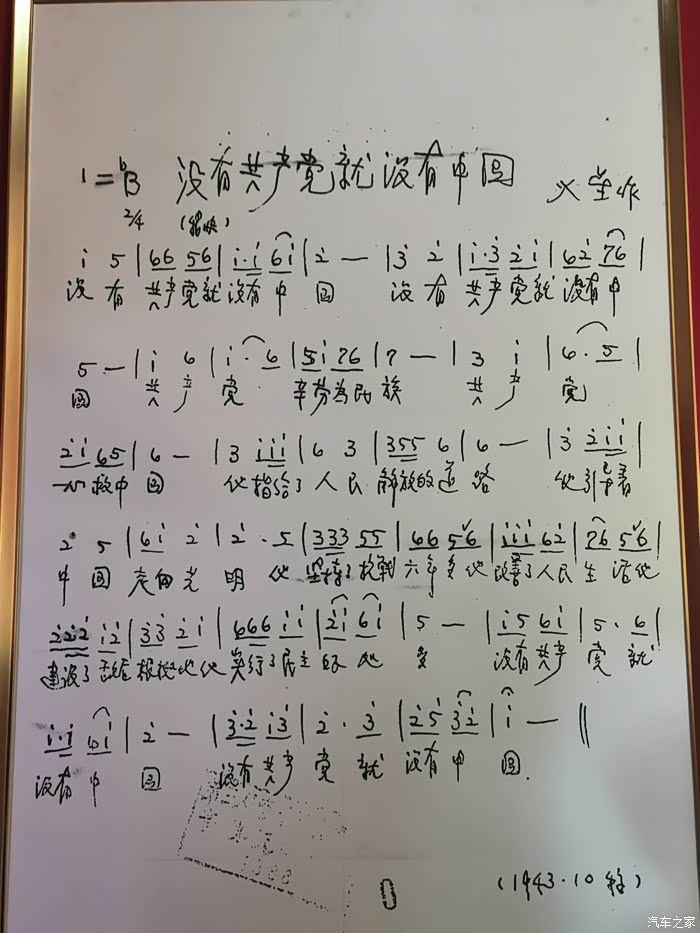 1=♭B 没有共产党就没有中国 火星作
2/4 (稍快)
i 5 | 66 56 | i·i 6i | 2 — | 3 2 | i·3 2i | 62 76 |
没有共产党就没有中国 没有共产党就没有中
5 — | i 6 | i· 6 | 5i 76 | 7 — | 3 i | 6·5 |
国 共产党 辛劳为民族 共产党
2i 65 | 6 — | 3 iii | 6 3 | 355 6 | 6 — | 3 2ii |
一心救中国 他指给了人民解放的道路 他引导着
2 5 | 6i 2 | 2·5 | 333 55 | 66 56 | iii 62 | 76 56 |
中国走向光明 他坚持了抗战六年多他改善了人民生活他
222 i2 | 33 2i | 666 ii | 2i 6i | 5 — | i5 6i | 5·6 |
建设了敌后根据地他实行了民主好处多 没有共产党就
i·i 6i | 2 — | 3·2 i3 | 2·3 | 25 32 | i — ‖
没有中国 没有共产党就没有中国.
(1943·10 )
汽车之家